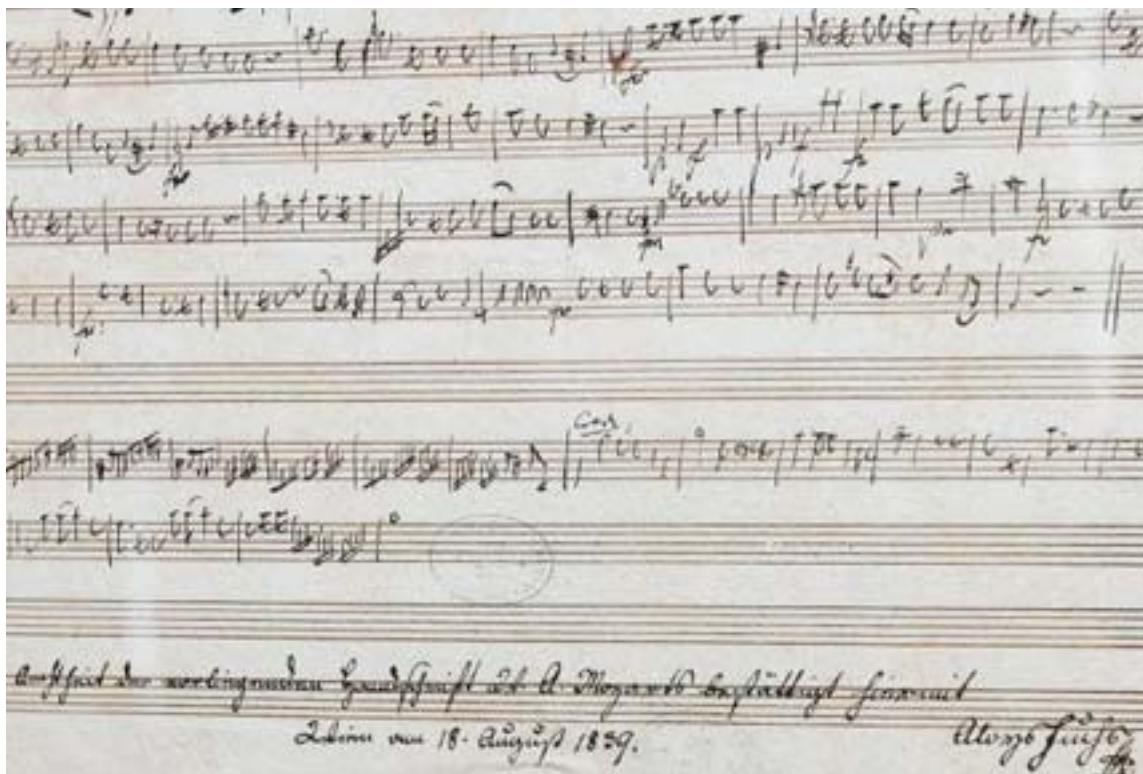 Coda
der vorliegenden Handschrift W. A. Mozarts bestättigt hiermit
Wien am 18. August 1839.
Aloys Fuchs